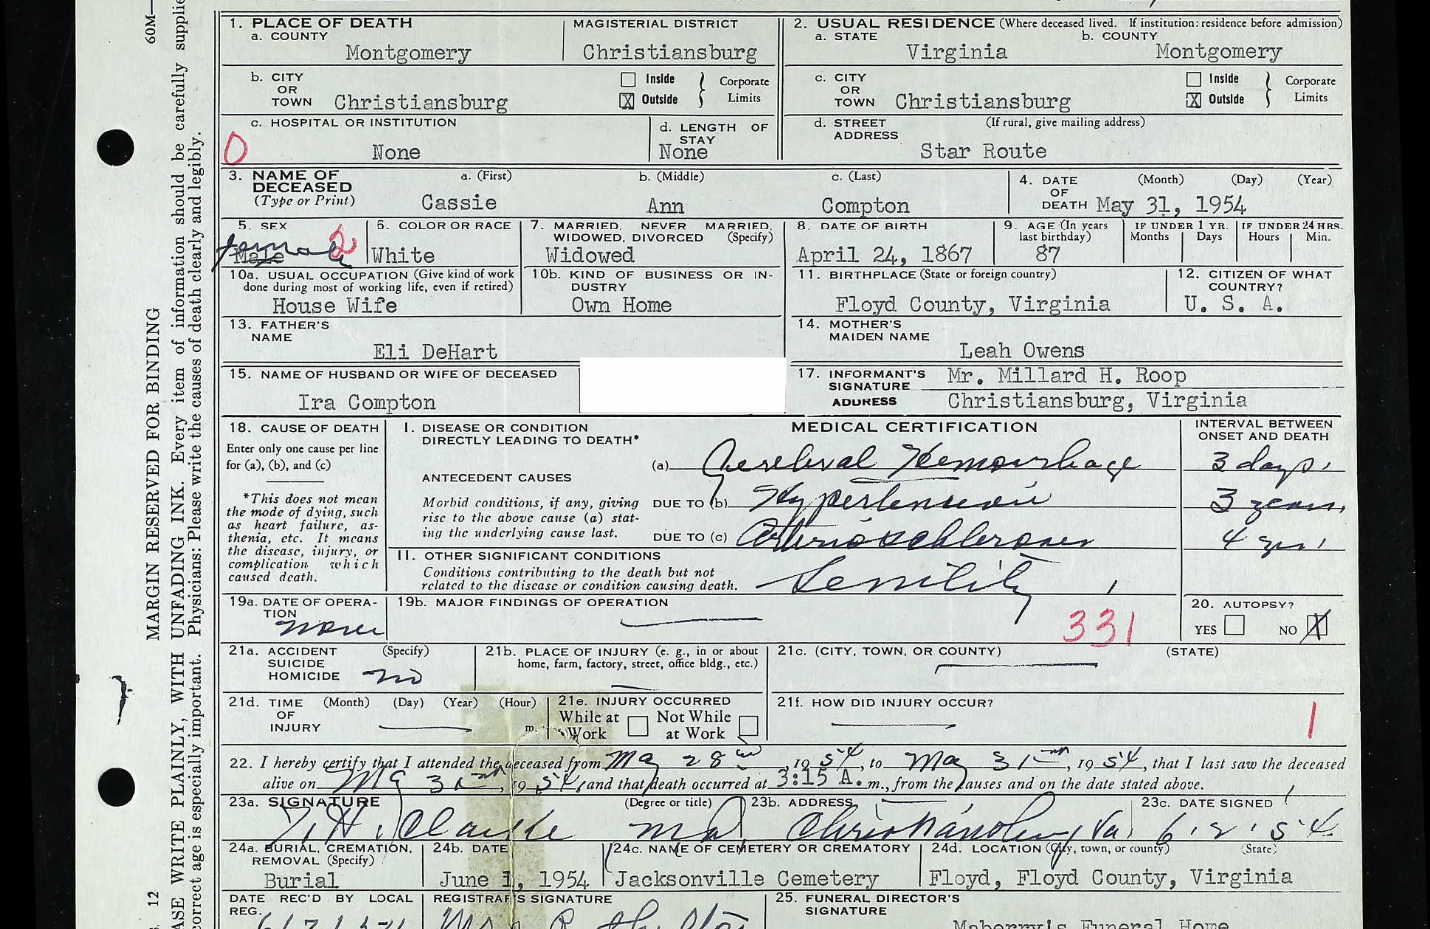 1. PLACE OF DEATH
a. COUNTY
Montgomery
MAGISTERIAL DISTRICT
Christiansburg
2. USUAL RESIDENCE (Where deceased lived. If institution: residence before admission)
a. STATE
Virginia
b. COUNTY
Montgomery
b. CITY OR TOWN Christiansburg
Inside
X Outside
Corporate Limits
c. CITY OR TOWN Christiansburg
Inside
X Outside
Corporate Limits
c. HOSPITAL OR INSTITUTION
0
None
d. LENGTH OF STAY
None
d. STREET ADDRESS
(If rural, give mailing address)
Star Route
3. NAME OF DECEASED
(Type or Print)
a. (First)
Cassie
b. (Middle)
Ann
c. (Last)
Compton
4. DATE OF DEATH
(Month) (Day) (Year)
May 31, 1954
5. SEX
Male
2
6. COLOR OR RACE
White
7. MARRIED, NEVER MARRIED, WIDOWED, DIVORCED (Specify)
Widowed
8. DATE OF BIRTH
April 24, 1867
9. AGE (In years last birthday)
87
IF UNDER 1 YR.
Months Days
IF UNDER 24 HRS.
Hours Min.
10a. USUAL OCCUPATION (Give kind of work done during most of working life, even if retired)
House Wife
10b. KIND OF BUSINESS OR INDUSTRY
Own Home
11. BIRTHPLACE (State or foreign country)
Floyd County, Virginia
12. CITIZEN OF WHAT COUNTRY?
U. S. A.
13. FATHER'S NAME
Eli DeHart
14. MOTHER'S MAIDEN NAME
Leah Owens
15. NAME OF HUSBAND OR WIFE OF DECEASED
Ira Compton
17. INFORMANT'S SIGNATURE Mr. Millard H. Roop
ADDRESS Christiansburg, Virginia
18. CAUSE OF DEATH
Enter only one cause per line for (a), (b), and (c)
*This does not mean the mode of dying, such as heart failure, asthenia, etc. It means the disease, injury, or complication which caused death.
MEDICAL CERTIFICATION
INTERVAL BETWEEN ONSET AND DEATH
I. DISEASE OR CONDITION DIRECTLY LEADING TO DEATH*
(a) Cerebral Hemourhage
3 days.
ANTECEDENT CAUSES
Morbid conditions, if any, giving rise to the above cause (a) stating the underlying cause last.
DUE TO (b) Hypertension
3 years,
DUE TO (c)
4 yrs.
II. OTHER SIGNIFICANT CONDITIONS
Conditions contributing to the death but not related to the disease or condition causing death.
Senility
19a. DATE OF OPERATION
None
19b. MAJOR FINDINGS OF OPERATION
331
20. AUTOPSY?
YES NO X
21a. ACCIDENT SUICIDE HOMICIDE (Specify)
no
21b. PLACE OF INJURY (e. g., in or about home, farm, factory, street, office bldg., etc.)
21c. (CITY, TOWN, OR COUNTY) (STATE)
21d. TIME OF INJURY (Month) (Day) (Year) (Hour)
m.
21e. INJURY OCCURRED
While at Work Not While at Work
21f. HOW DID INJURY OCCUR?
1
22. I hereby certify that I attended the deceased from May 28, 1954, to May 31, 1954, that I last saw the deceased
alive on 1954, and that death occurred at 3:15 A. m., from the causes and on the date stated above.
23a. SIGNATURE (Degree or title)
MD
23b. ADDRESS
Christiansburg Va.
23c. DATE SIGNED
6.2.54
24a. BURIAL, CREMATION, REMOVAL (Specify)
Burial
24b. DATE
June 1, 1954
24c. NAME OF CEMETERY OR CREMATORY
Jacksonville Cemetery
24d. LOCATION (City, town, or county) (State)
Floyd, Floyd County, Virginia
DATE REC'D BY LOCAL REG.
REGISTRAR'S SIGNATURE
25. FUNERAL DIRECTOR'S SIGNATURE
Funeral Home
60M—
MARGIN RESERVED FOR BINDING
WRITE PLAINLY, WITH UNFADING INK. Every item of information should be carefully
age is especially important. Physicians: Please write the causes of death clearly and legibly.
12